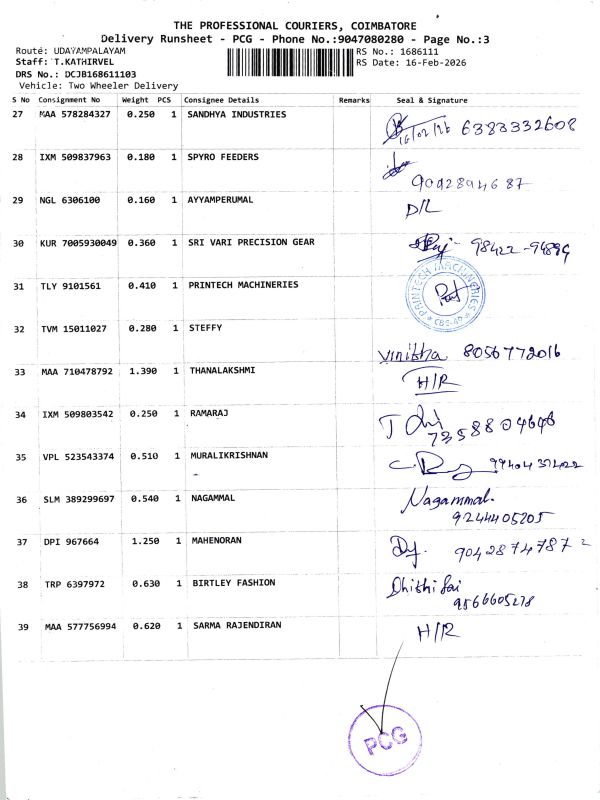 THE PROFESSIONAL COURIERS, COIMBATORE
Delivery Runsheet - PCG - Phone No.:9047080280 - Page No.:3
Route: UDAYAMPALAYAM RS No.: 1686111
Staff: T.KATHIRVEL RS Date: 16-Feb-2026
DRS No.: DCJB168611103
Vehicle: Two Wheeler Delivery
S No Consignment No Weight PCS Consignee Details Remarks Seal & Signature
27 MAA 578284327 0.250 1 SANDHYA INDUSTRIES
16/02/26 6383332608
28 IXM 509837963 0.180 1 SPYRO FEEDERS
9092894687
29 NGL 6306100 0.160 1 AYYAMPERUMAL D/L
30 KUR 7005930049 0.360 1 SRI VARI PRECISION GEAR
98422-94894
31 TLY 9101561 0.410 1 PRINTECH MACHINERIES
PRINTECH MACHINERIES
32 TVM 15011027 0.280 1 STEFFY
vinitha 8056772016
33 MAA 710478792 1.390 1 THANALAKSHMI H/R
34 IXM 509803542 0.250 1 RAMARAJ
7358804646
35 VPL 523543374 0.510 1 MURALIKRISHNAN 9940437422
36 SLM 389299697 0.540 1 NAGAMMAL Nagammal.
9244405205
37 DPI 967664 1.250 1 MAHENORAN 9042874787 2
38 TRP 6397972 0.630 1 BIRTLEY FASHION
9566605278
39 MAA 577756994 0.620 1 SARMA RAJENDIRAN H/R
PCG